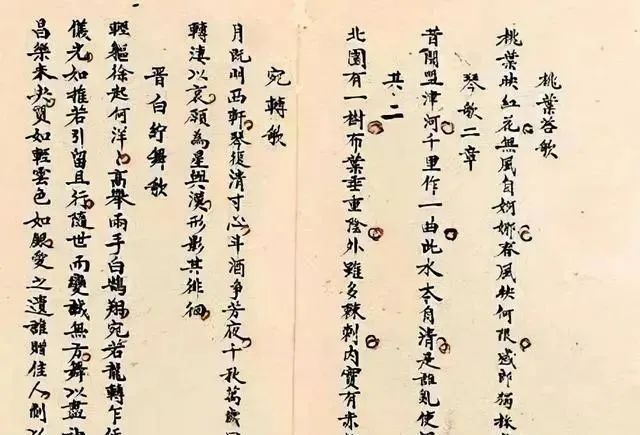 桃葉答歌
桃葉映紅花無風自婀娜春風映何限感郎獨採
琴歌二章
昔聞盟津河千里作一曲此水本自清是誰亂使
其二
北園有一樹布葉垂重陰外雖多棘刺内實有赤
宛轉歌
月既明西軒琴復清寸心斗酒爭芳夜千秋萬歲同
轉淒以哀願為星與漢形影共徘徊
晉白紵舞歌
輕軀徐起何洋〻高舉兩手白鵠翔宛若龍轉乍低
儀光如推若引留且行隨世而變誠無方舞以盡神
昌樂未央質如輕雲色如銀愛之遺誰贈佳人制以